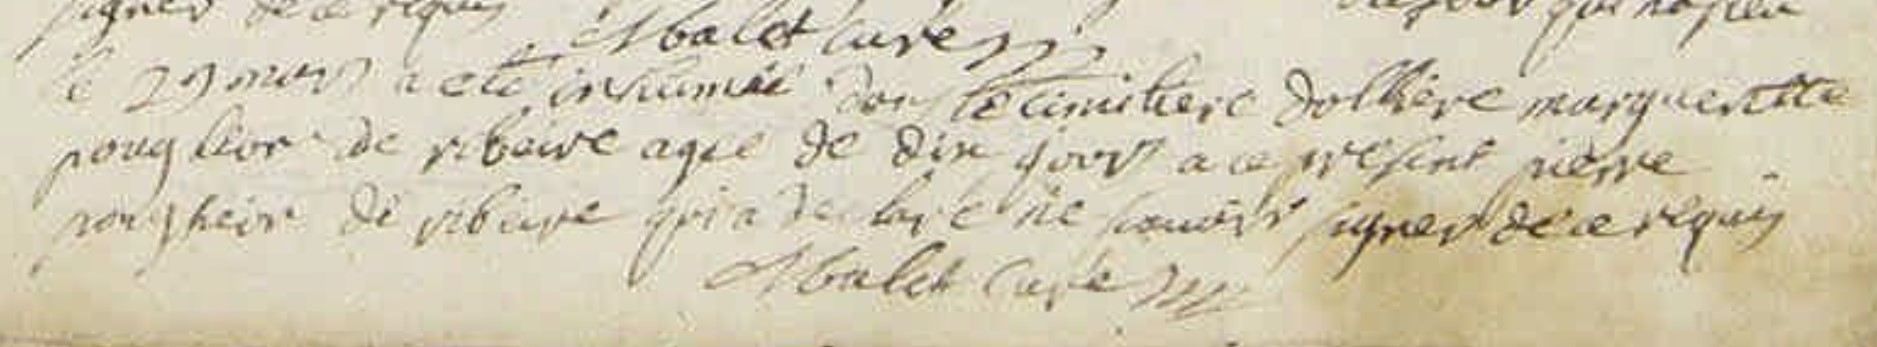 signer de ce requis
Mbalet curé
le 29 mars a eté inhumée dans le cimitiere dolliere margueritte
pougheor de ribeire agee de dix jours a ce present pierre
pougheor de ribeire qui a declaré ne scauoir signer de ce requis
Mbalet Curé